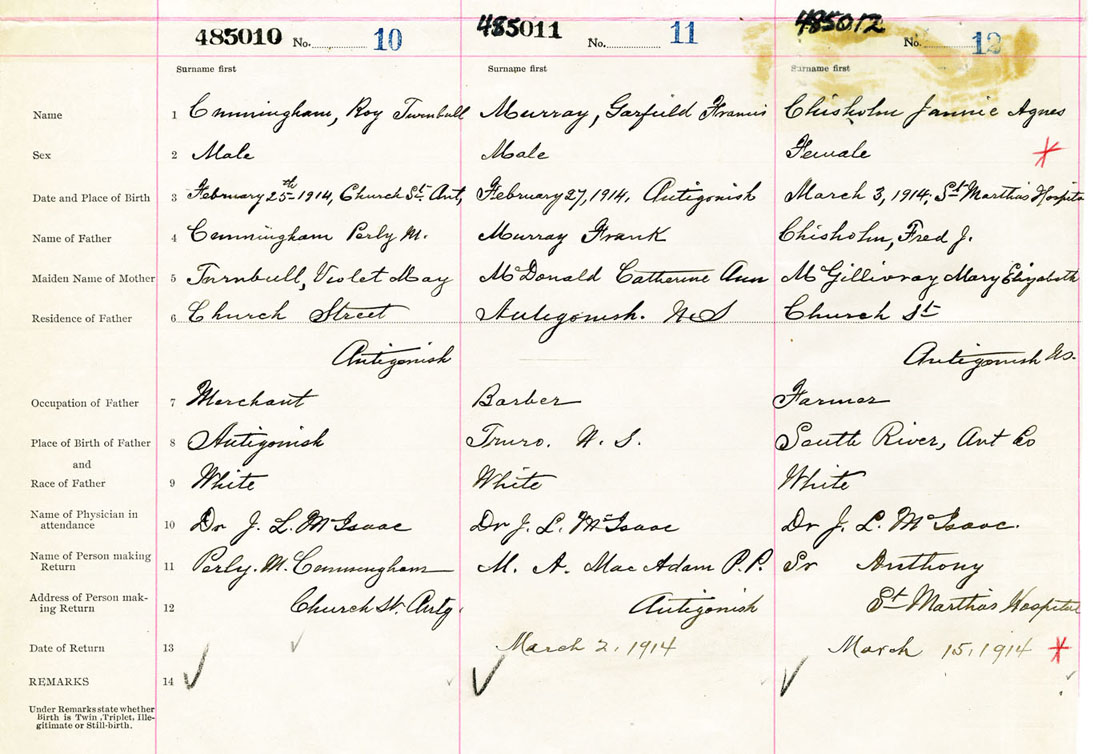 485010 No. 10 485011 No. 11 485012 No. 12
Surname first Surname first Surname first
Name 1 Cunningham, Roy Turnbull Murray, Garfield Francis Chisholm Jannie Agnes
Sex 2 Male Male Female
Date and Place of Birth 3 February 25th 1914, Church St. Ant, February 27, 1914. Antigonish March 3, 1914, St Marthas Hospital
Name of Father 4 Cunningham Perly M. Murray Frank Chisholm, Fred J.
Maiden Name of Mother 5 Turnbull, Violet May McDonald Catherine Ann McGillivray Mary Elizabeth
Residence of Father 6 Church Street Antigonish. N.S Church St
Antigonish Antigonish NS.
Occupation of Father 7 Merchant Barber Farmer
Place of Birth of Father 8 Antigonish Truro. N. S. South River, Ant Co
and
Race of Father 9 White White White
Name of Physician in
attendance 10 Dr J. L. McIsaac Dr J. L. McIsaac Dr J. L. McIsaac.
Name of Person making
Return 11 Perly. M. Cunningham M. A. MacAdam P.P. Sr Anthony
Address of Person mak-
ing Return 12 Church St. Antg. Antigonish St Marthas Hospital
Date of Return 13 March 2, 1914 March 15, 1914
REMARKS 14
Under Remarks state whether
Birth is Twin, Triplet, Ille-
gitimate or Still-birth.